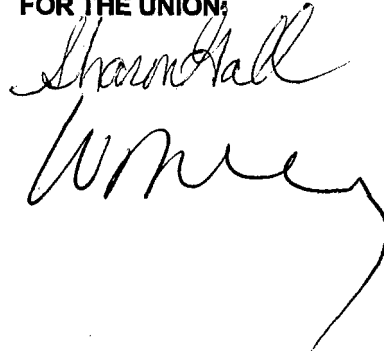 FOR THE UNION:
Sharon Hall